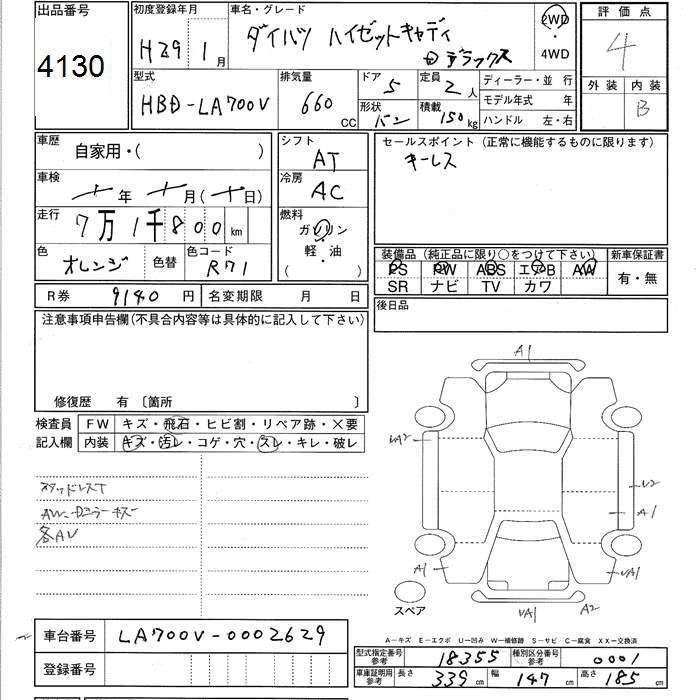 出品番号
4130
初度登録年月
H29 1月
車名・グレード
ダイハツ ハイゼットキャディ
デラックス
2WD
4WD
評価点
4
外装 内装
B
型式
HBD-LA700V
排気量
660 CC
ドア 5
形状 バン
定員 2人
積載 150kg
ディーラー・並 行
モデル年式 年
ハンドル 左・右
車歴
自家用・( )
車検
年 月( 日)
走行
7万1千800km
色
オレンジ
色替
色コード
R71
シフト
AT
冷房
AC
燃料
ガソリン
軽・油
( )
セールスポイント(正常に機能するものに限ります)
キーレス
装備品(純正品に限り○をつけて下さい)
PS PW ABS エアB AW
SR ナビ TV カワ
新車保証書
有・無
R券 9140円
名変期限 月 日
後日品
注意事項申告欄(不具合内容等は具体的に記入して下さい)
修復歴 有〔箇所 〕
検査員
記入欄
FW キズ・飛石・ヒビ割・リペア跡・×要
内装 キズ・汚レ・コゲ・穴・スレ・キレ・破レ
スタッドレスT
各AU
A1
UA2
U2
A1
A1
UA1
UA1
A2
スペア
A-キズ E-エクボ U-凹み W-補修跡 S-サビ C-腐食 XX-交換済
車台番号
LA700V-0002629
登録番号
型式指定番号
参考
18355
種別区分番号
参考
0001
車庫証明用
参考
長さ 339cm
幅 147cm
高さ 185cm